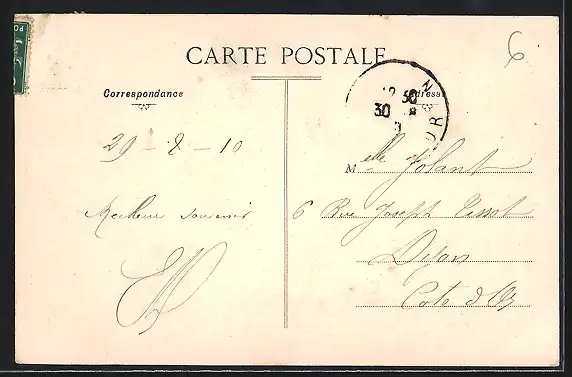 CARTE POSTALE
Correspondance
Adresse
6
30
29 - 8 - 10
Meilleur souvenir
Melle Jolant
6 Rue Joseph Tissot
Dijon
Cote d'Or